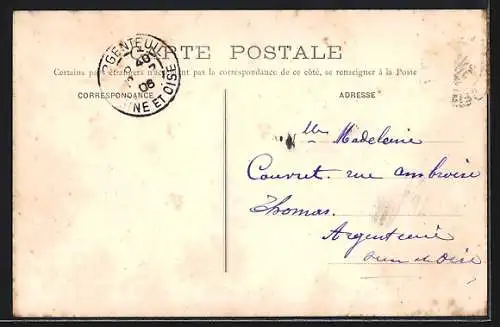 CARTE POSTALE
Certains pays étrangers n'acceptent pas la correspondance de ce côté, se renseigner à la Poste
CORRESPONDANCE
ADRESSE
ARGENTEUIL
SEINE ET OISE
Mlle Madeleine
Couvret. rue ambroise
Thomas.
Argenteuil